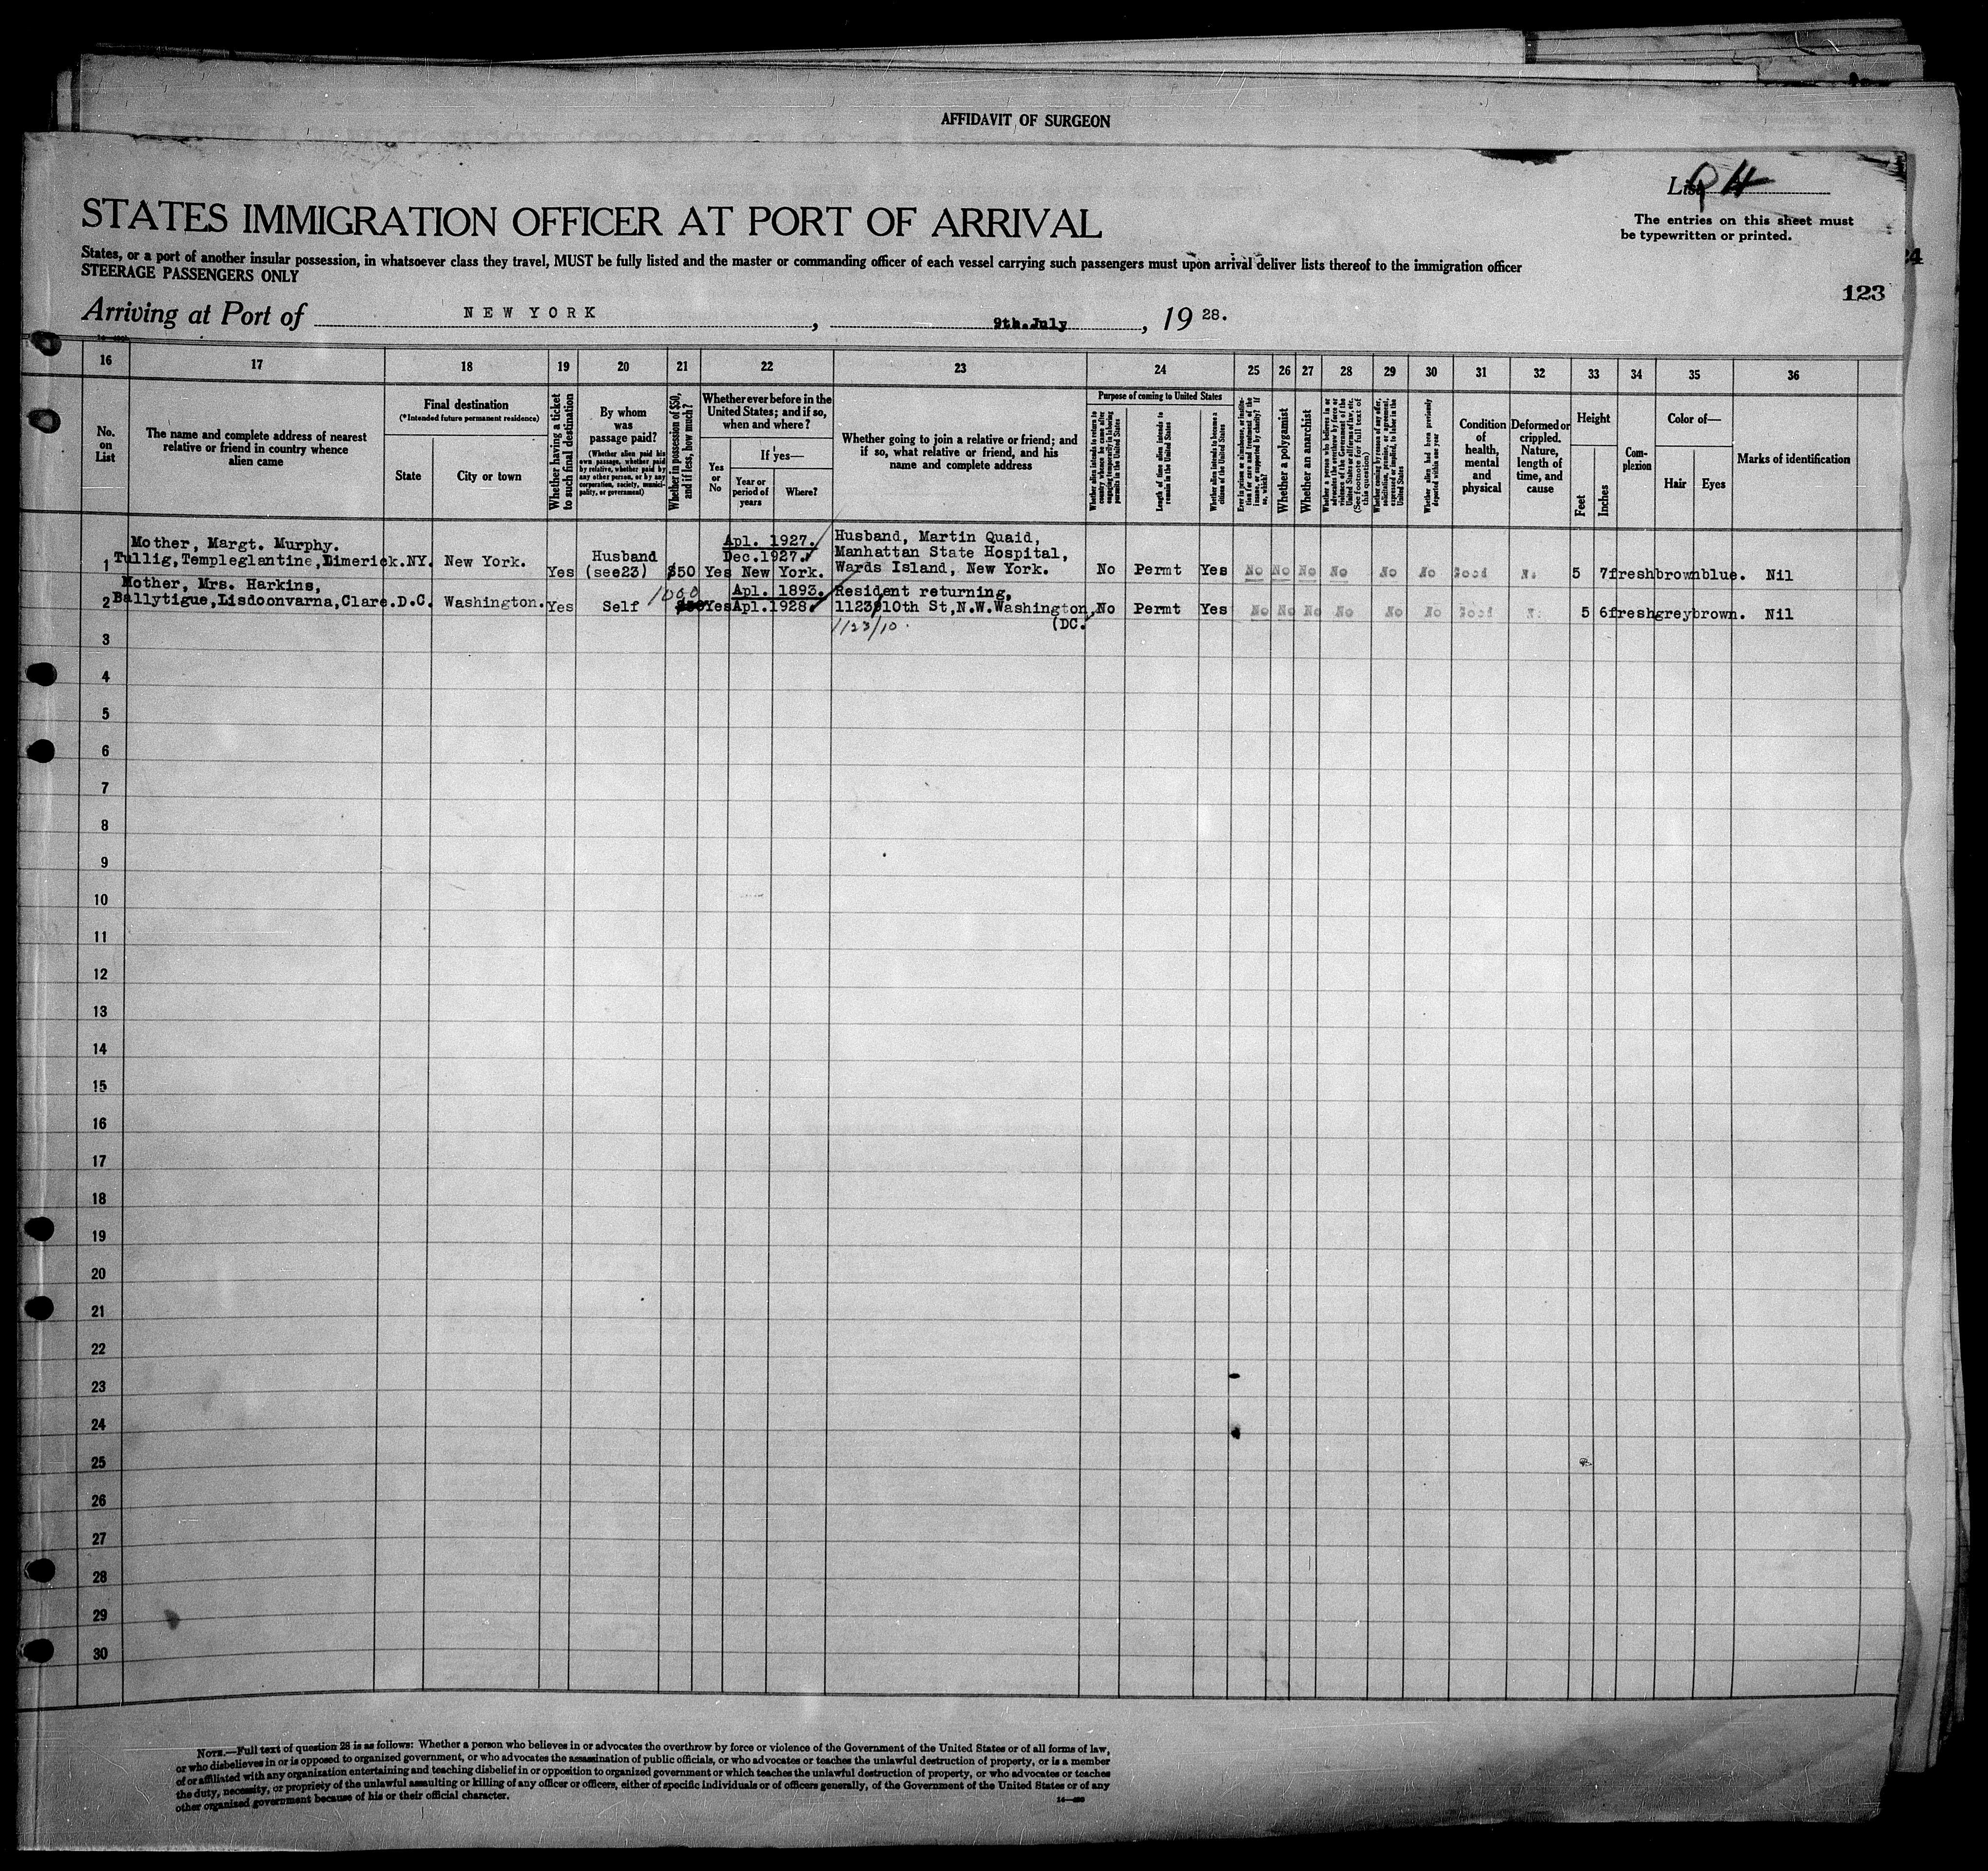 AFFIDAVIT OF SURGEON
List
The entries on this sheet must
be typewritten or printed.
STATES IMMIGRATION OFFICER AT PORT OF ARRIVAL
States, or a port of another insular possession, in whatsoever class they travel, MUST be fully listed and the master or commanding officer of each vessel carrying such passengers must upon arrival deliver lists thereof to the immigration officer
STEERAGE PASSENGERS ONLY
24
123
Arriving at Port of NEW YORK, 9th.July, 19 28.
16 17 18 19 20 21 22 23 24 25 26 27 28 29 30 31 32 33 34 35 36
No.
on
List
The name and complete address of nearest
relative or friend in country whence
alien came
Final destination
(*Intended future permanent residence)
State
City or town
Whether having a ticket
to such final destination
By whom
was
passage paid?
(Whether alien paid his
own passage, whether paid
by relative, whether paid by
any other person, or by any
corporation, society, munici-
pality, or government)
Whether in possession of $50,
and if less, how much?
Whether ever before in the
United States; and if so,
when and where?
Yes
or
No
If yes—
Year or
period of
years
Where?
Whether going to join a relative or friend; and
if so, what relative or friend, and his
name and complete address
Purpose of coming to United States
Whether alien intends to return to
country whence he came after
engaging temporarily in laboring
pursuits in the United States
Length of time alien intends to
remain in the United States
Whether alien intends to become a
citizen of the United States
Ever in prison or almshouse, or institu-
tion for care and treatment of the
insane, or supported by charity? If
so, which?
Whether a polygamist
Whether an anarchist
Whether a person who believes in or
advocates the overthrow by force or
violence of the Government of the
United States or all forms of law, etc.
(See footnote for full text of
this question)
Whether coming by reason of any offer,
solicitation, promise, or agreement,
expressed or implied, to labor in the
United States
Whether alien had been previously
deported within one year
Condition
of
health,
mental
and
physical
Deformed or
crippled.
Nature,
length of
time, and
cause
Height
Feet
Inches
Com-
plexion
Color of—
Hair
Eyes
Marks of identification
1 Mother, Margt. Murphy.
Tullig,Templeglantine,Limerick. NY. New York. Yes Husband
(see23) $50 Yes Apl. 1927.
Dec.1927.
New York. Husband, Martin Quaid,
Manhattan State Hospital,
Wards Island, New York. No Permt Yes No No No No No No Good No 5 7 fresh brown blue. Nil
2 Mother, Mrs. Harkins,
Ballytigue,Lisdoonvarna,Clare. D.C. Washington. Yes Self 1000 $50 Yes Apl. 1893.
Apl.1928. Resident returning,
1123,10th St,N.W.Washington,
(DC. No Permt Yes No No No No No No Good No 5 6 fresh grey brown. Nil
1123/10.
3
4
5
6
7
8
9
10
11
12
13
14
15
16
17
18
19
20
21
22
23
24
25
26
27
28
29
30
NOTE.—Full text of question 28 is as follows: Whether a person who believes in or advocates the overthrow by force or violence of the Government of the United States or of all forms of law,
or who disbelieves in or is opposed to organized government, or who advocates the assassination of public officials, or who advocates or teaches the unlawful destruction of property, or is a member
of or affiliated with any organization entertaining and teaching disbelief in or opposition to organized government or which teaches the unlawful destruction of property, or who advocates or teaches
the duty, necessity, or propriety of the unlawful assaulting or killing of any officer or officers, either of specific individuals or of officers generally, of the Government of the United States or of any
other organized government because of his or their official character.